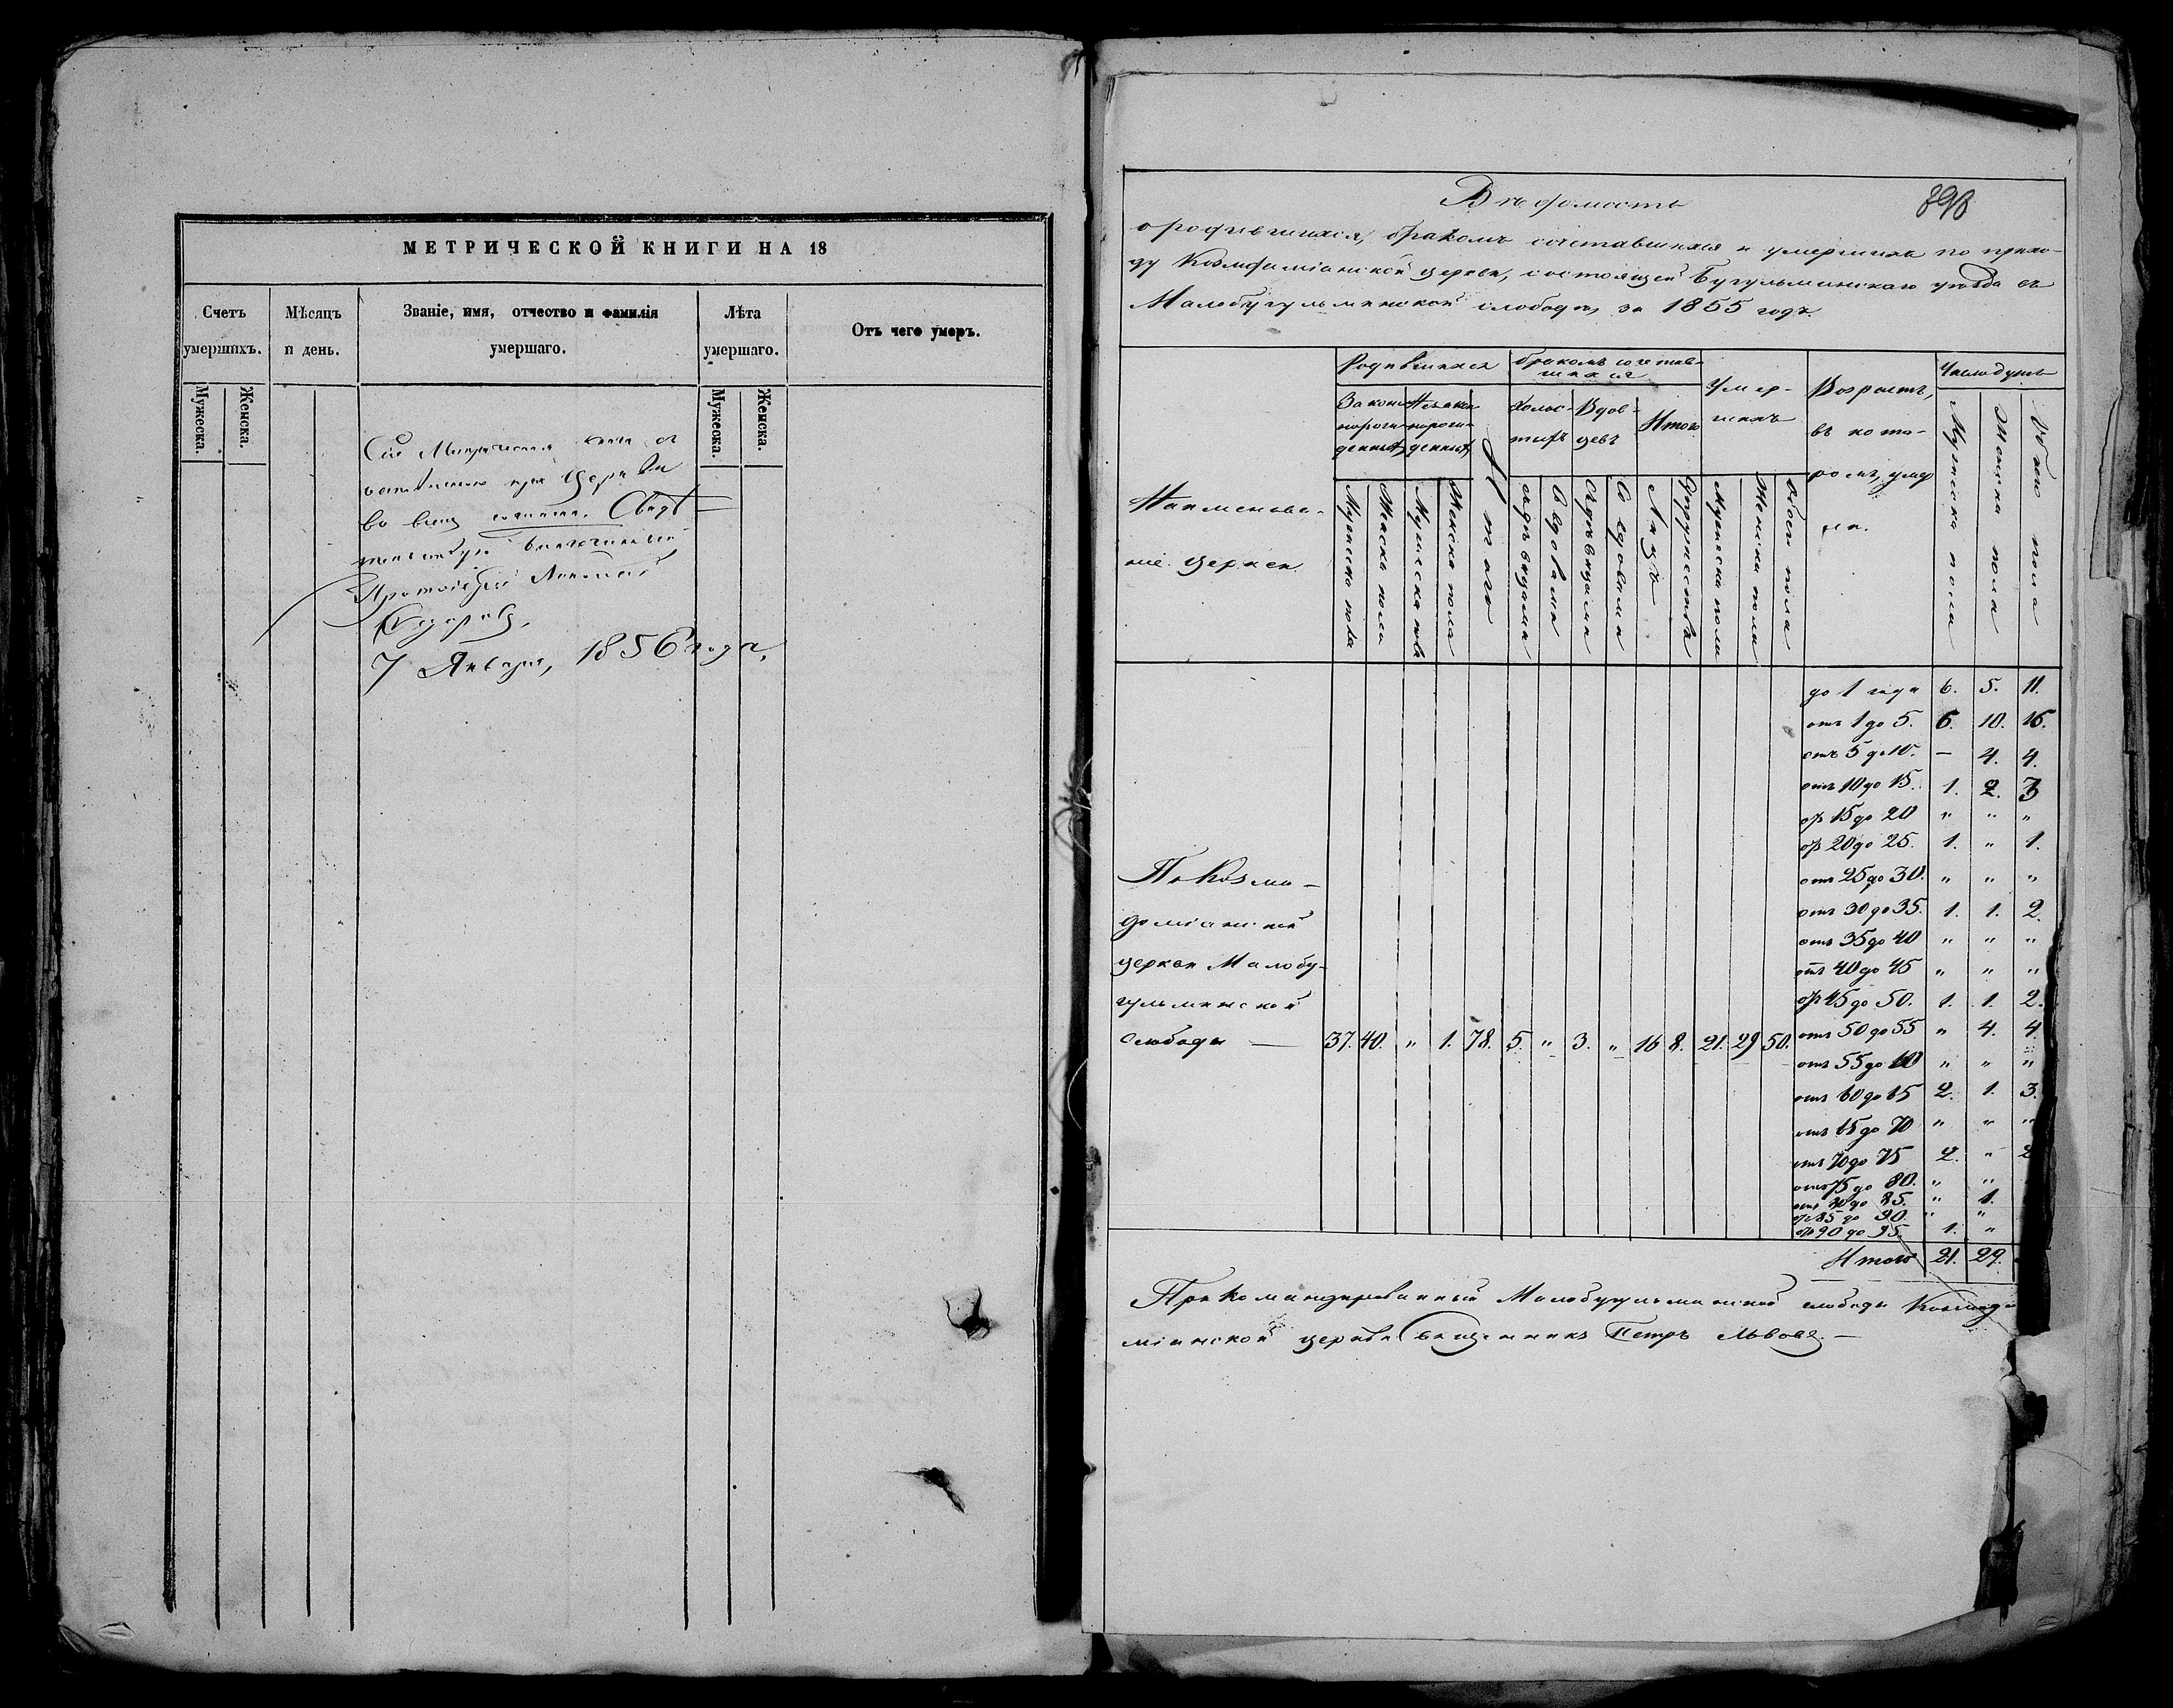 МЕТРИЧЕСКОЙ КНИГИ НА 18
Счетъ умершихъ.
Мѣсяцъ и день.
Званіе, имя, отчество и фамилія умершаго.
Лѣта умершаго.
Отъ чего умеръ.
Мужеска.
Женска.
Мужеска.
Женска.
Сія Метрическая
при Церкви
Протоіерей
7 Января, 1856 года.
898
Вѣдомость
о родившихся, бракомъ сочетавшихся и умершихъ по прихо-
ду Козмодаміанской церкви, состоящей Бугульминскаго уѣзда въ
Малобугульминской слободѣ, за 1855 годъ.
Наименова-
ніе церкви.
Родившихся
Законно-
рожденныхъ
Незаконно-
рожденныхъ
Итого
Бракомъ сочетав-
шихся
Холос-
тыхъ
Вдов-
цевъ
Итого
Умер-
шихъ
Возрастъ,
въ кото-
ромъ умер-
ли.
Число душъ
Мужеска пола
Женска пола
Мужеска пола
Женска пола
Съ дѣвицами
Со вдовами
Съ дѣвицами
Со вдовами
Лицъ
Супружества
Мужеска пола
Женска пола
Обоего пола
Мужеска пола
Женска пола
Обоего пола
до 1 года 6. 5. 11.
отъ 1 до 5. 6. 10. 16.
отъ 5 до 10. — 4. 4.
отъ 10 до 15. 1. 2. 3
отъ 15 до 20 " " "
отъ 20 до 25. 1. " 1.
отъ 25 до 30. " " "
отъ 30 до 35. 1. 1. 2.
отъ 35 до 40 " " "
отъ 40 до 45 " " "
отъ 45 до 50. 1. 1. 2.
отъ 50 до 55 " 4. 4.
отъ 55 до 60 " " "
отъ 60 до 65 2. 1. 3.
отъ 65 до 70 " " "
отъ 70 до 75 2. " 2
отъ 75 до 80. " "
отъ 80 до 85. " 1.
отъ 85 до 90. " "
отъ 90 до 95. 1. "
Итого 21. 29.
По Козмо-
доміанской
церкви Малобу-
гульминской
слободы — 37. 40. " 1. 78. 5. " 3. " 16 8. 21. 29 50.
Прикомандированный Малобугульминской слободы Козмода
міанской церкви Священникъ Петръ Львовъ. —